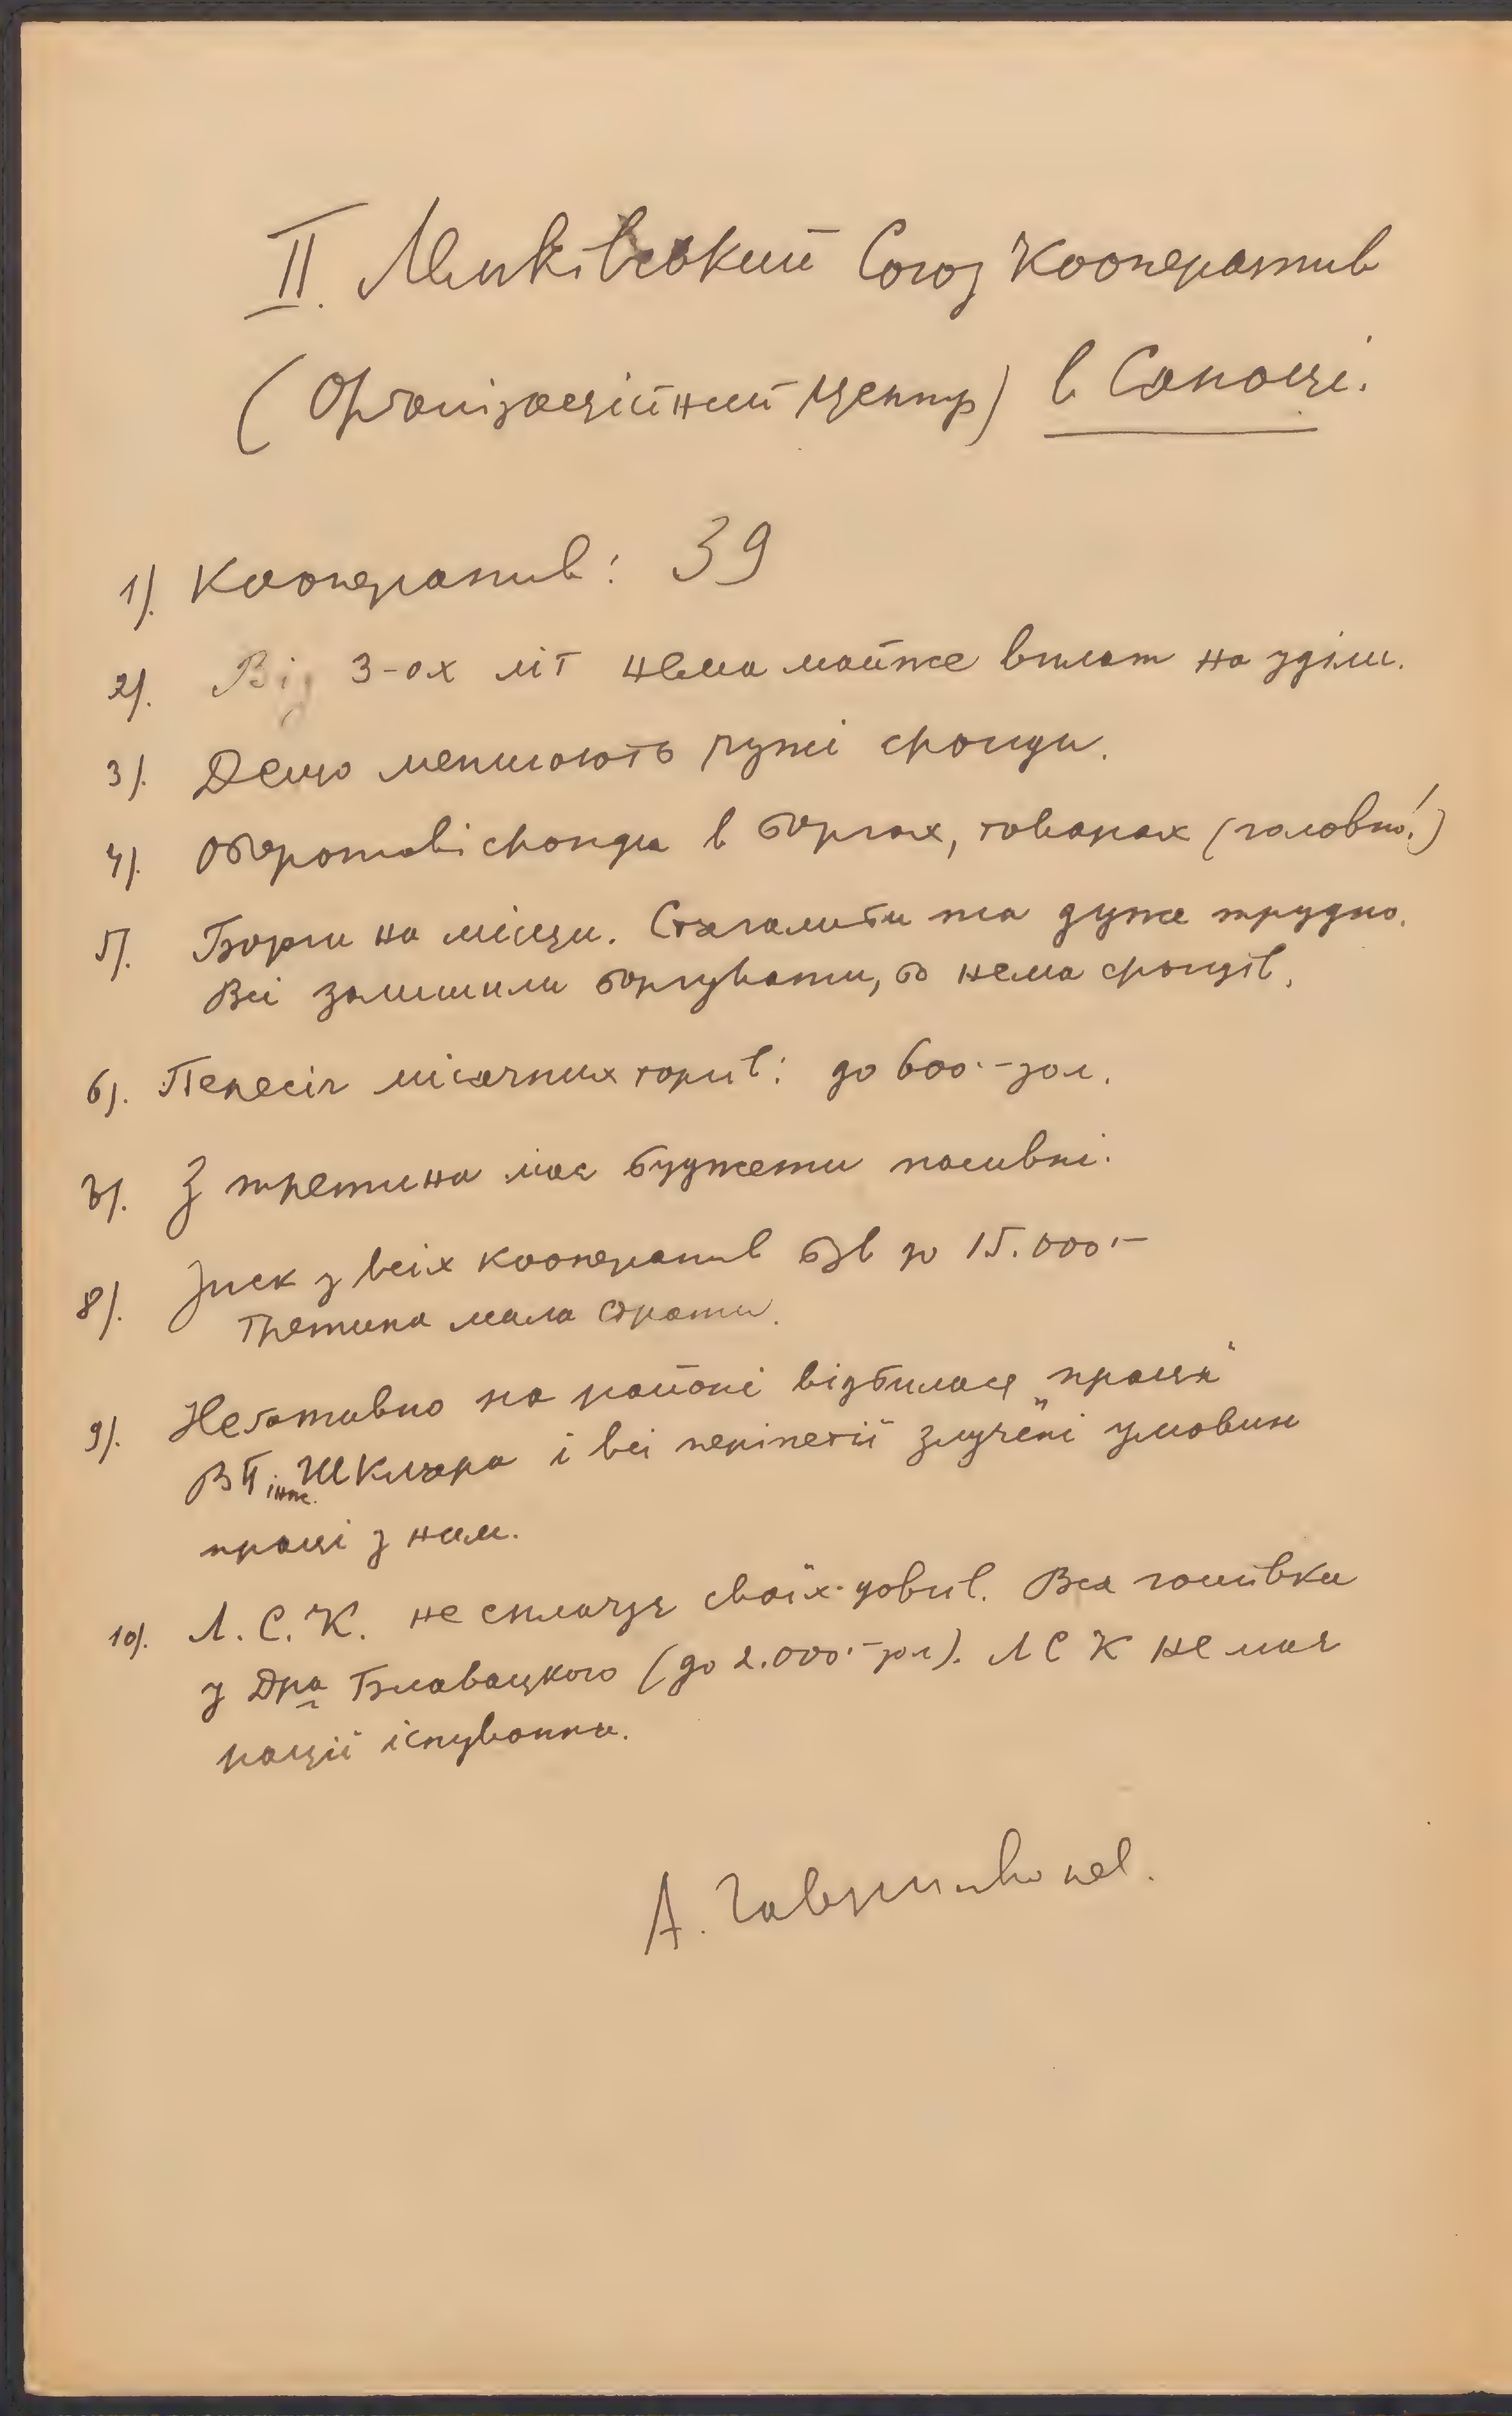 II. Лемківський Союз Кооператив
(Організаційний Центр) в Саноці.
1). Кооператив: 39
2). Від 3-ох літ нема майже вплат на уділи.
3). Дещо меншають чужі фонди.
4). Оборотові фонди в боргах, товарах (головно!)
5). Борги на місци. Стягалити їх дуже трудно.
Всі залишили боргувати, бо нема фондів.
6). Пересіч місячних торгів: до 600·- зол.
7). З третина має буджети пасивні.
8). Зиск з всіх кооператив був до 15.000·-
Третина мала страти.
9). Неґативно на районі відбилася „праця"
ВП інж. Шкляра і всі періпетії злучені умовин
праці з ним.
10). Л. С. К. не сплачує своїх довгів. Вся готівка
у Дра Блавацького (до 2.000·- зол). Л С К не має
рації існування.
А.